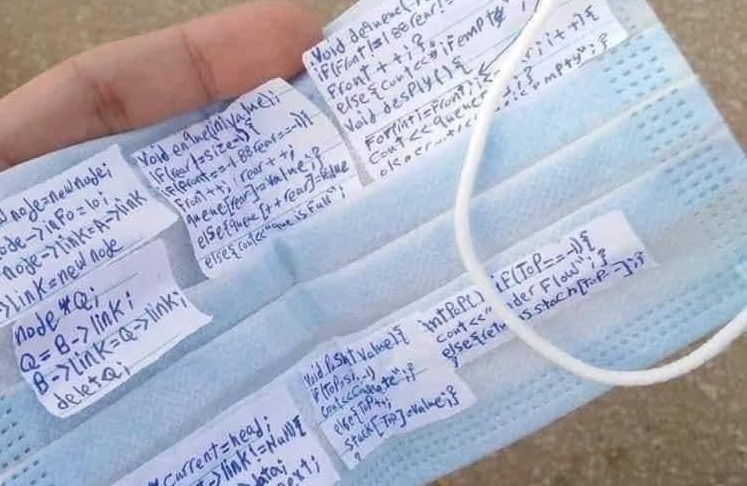 Void dequeue(
if(Front!=-1&&rear!=
Front++;}
else{cout<<"if empty
Void desply(){
For(int i=Front;
i++){
cout<<queue
empty";}
Void enqueue(int value){
if(rear!=size-1){
if(Front==-1&&rear==-1){
Front++; rear++;
queue[rear]=value;}
else{queue[++rear]=value
else{cout<<"queue is Full";
node=new node;
ode->inFo=10;
node->link=A->link
>link=new node
node*Q;
Q=B->link;
B->link=Q->link;
delet Q;
int PoP(){ if(ToP==-1){
cout<<"
der Flow";}
else{retu
s stack[ToP--];}
Void Push(value){
if(ToP
cout<<
else{ToP++;
stack[ToP]=value;}
current=head;
->link!=Null{
data;
ext;